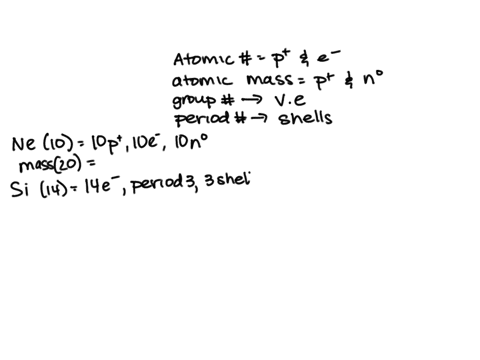 Atomic # = p⁺ & e⁻
atomic mass = p⁺ & n⁰
group # → v.e
period # → shells
Ne (10) = 10p⁺, 10e⁻, 10n⁰
mass(20) =
Si (14) = 14e⁻, period 3, 3 shel